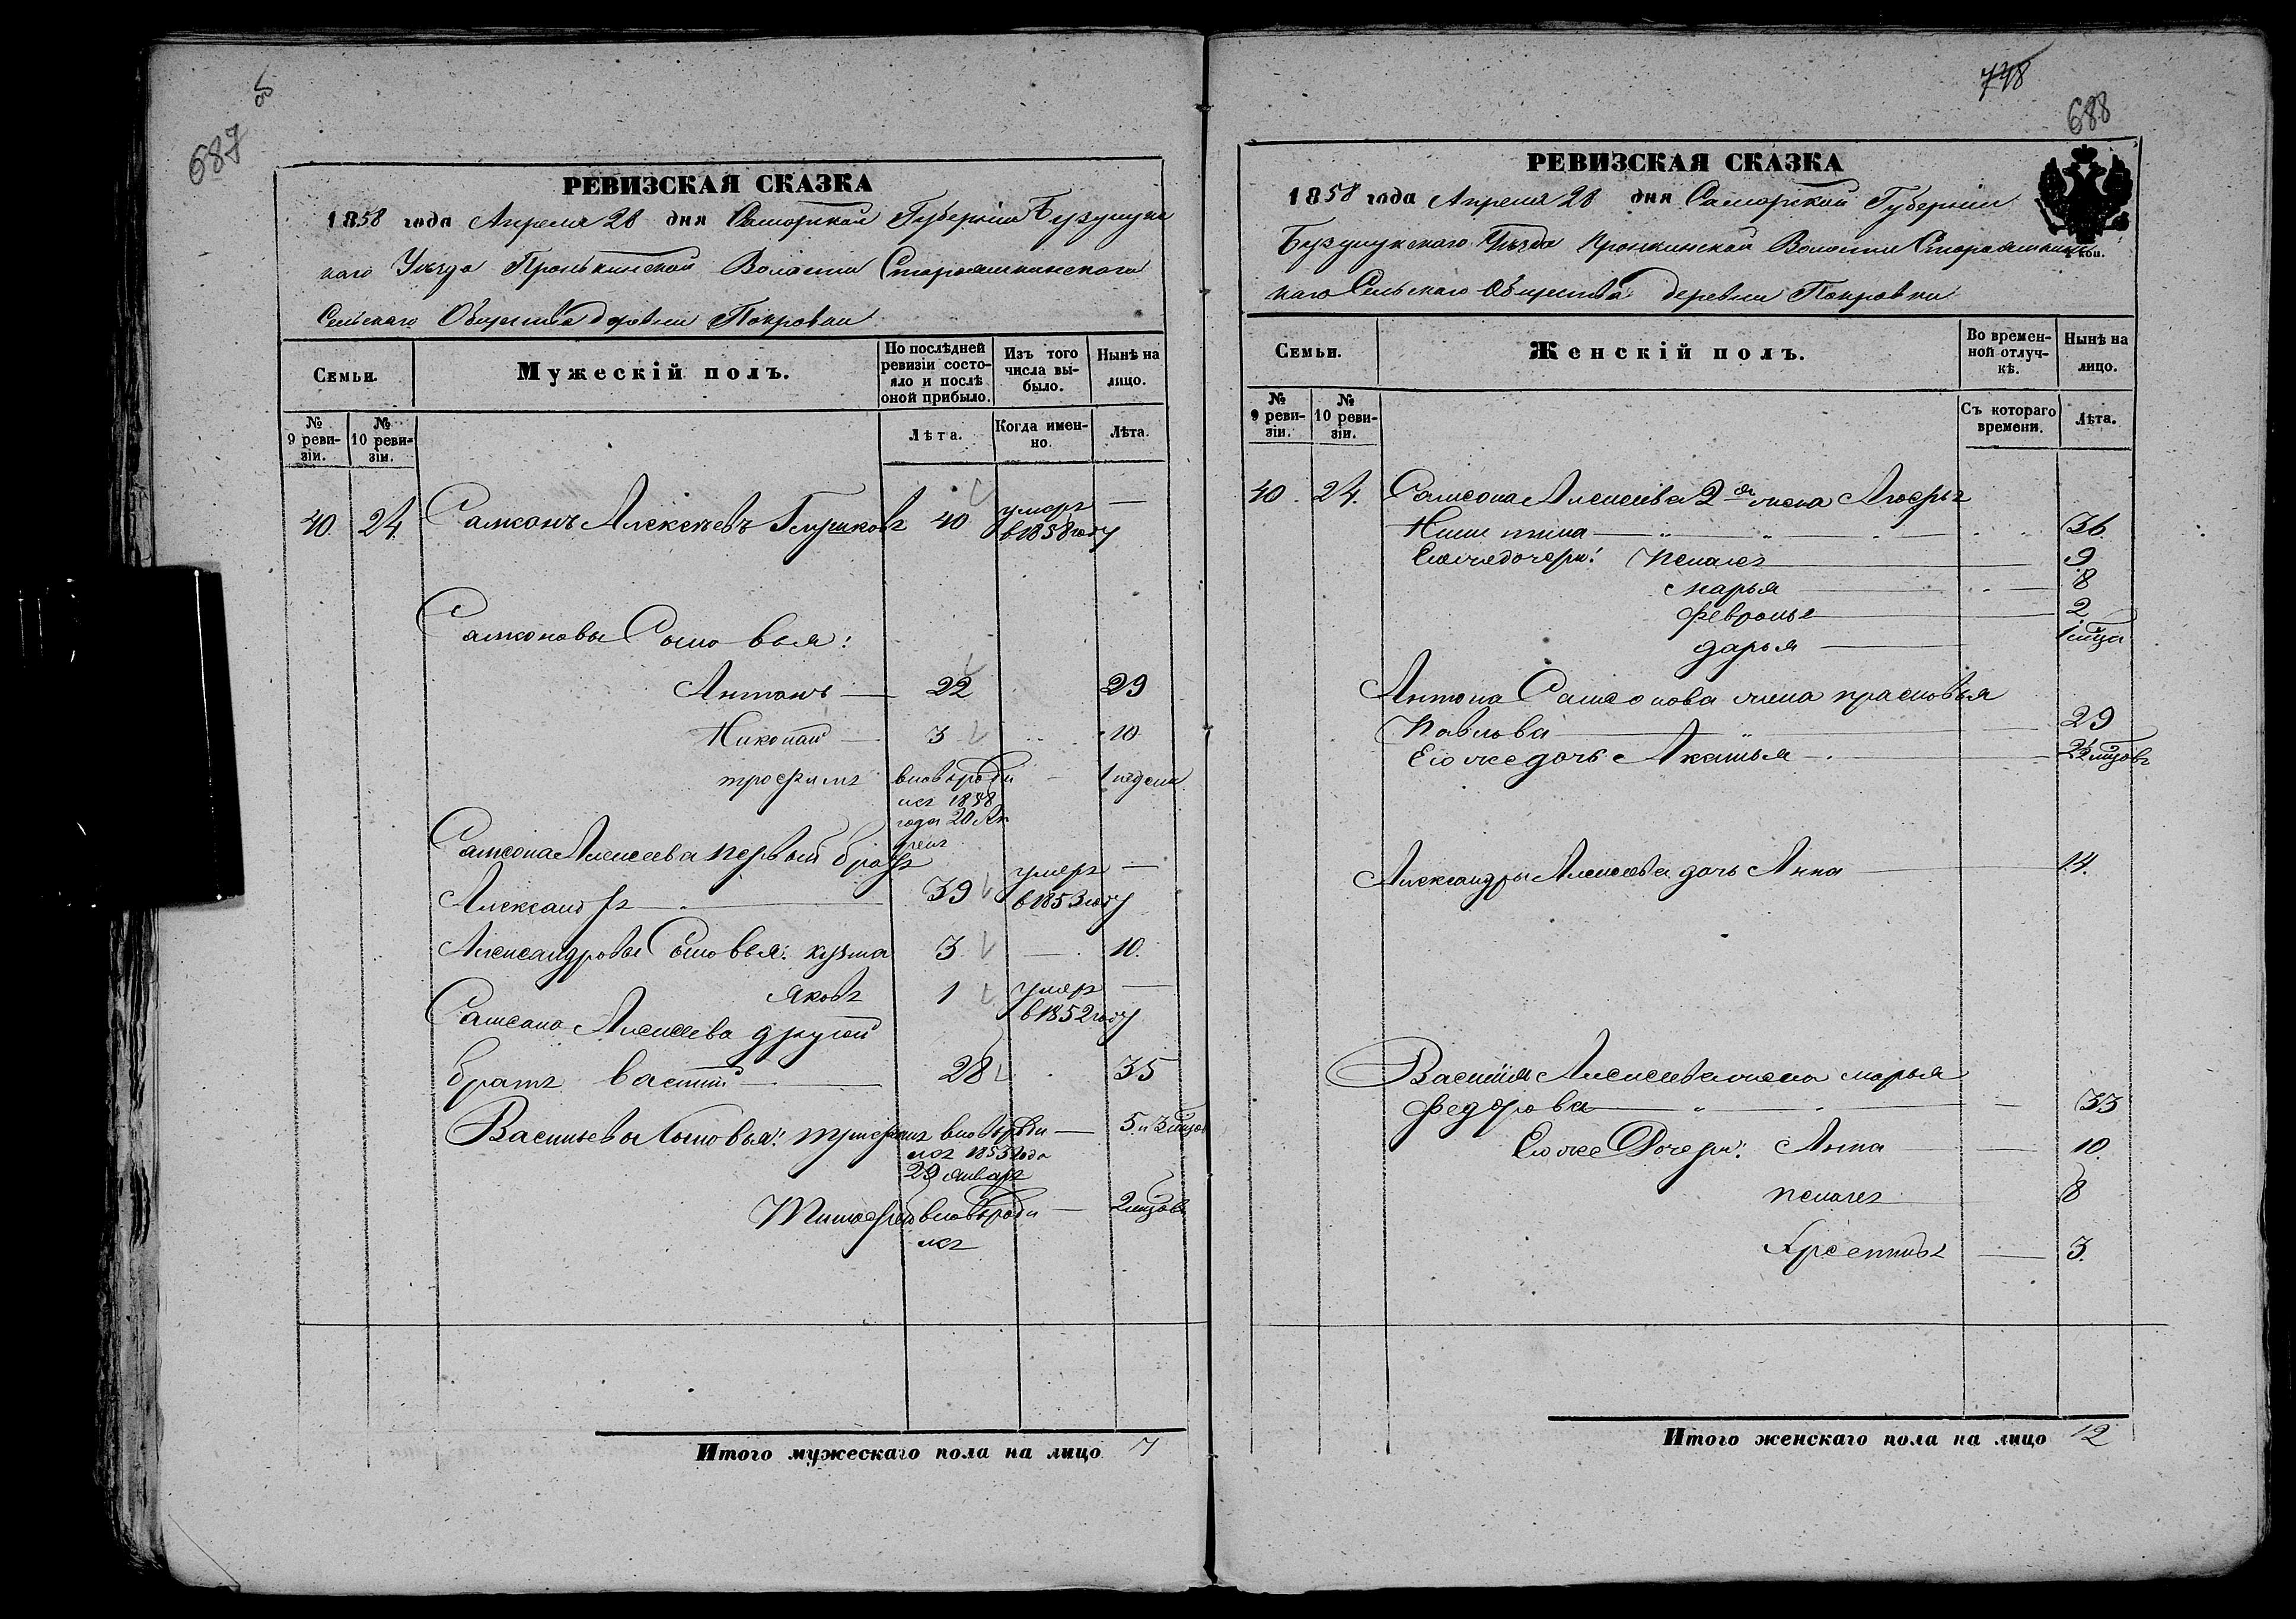 687
РЕВИЗСКАЯ СКАЗКА
1858 года Апреля 28 дня Самарской Губернiи Бузулук
каго Уѣзда Пронькинской Волости Староашкинскаго
Сельскаго Общества деревни Покровки
Семьи.
Мужескiй полъ.
По послѣдней ревизiи состо-
яло и послѣ
оной прибыло.
Изъ того
числа вы-
было.
Нынѣ на
лицо.
№
9 реви-
зiи.
№
10 реви-
зiи.
Лѣта.
Когда имен-
но.
Лѣта.
40. 24. Самсонъ Алексѣевъ 40 умеръ —
в 1858 году
Самсоновы Сыновья:
Антонъ — 22 29
Николай — 3 10
трофимъ вновьроди — 1 неделя
лсъ 1858
года 20 Ап
реля
Самсона Алексеева первый братъ
Александръ 39 умеръ —
в 1853 году
Александровы Сыновья: кузма 3 — 10.
Яковъ 1 умеръ —
в 1852 году
Самсона Алексеева другой
братъ василий 28 35
Васильевы Сыновья: вновьроди — 5 и 3 мцов
лсъ 1853 года
29 январь
Тимофей вновьроди — 2 мцовъ
лсъ
Итого мужескаго пола на лицо 7
748
688
РЕВИЗСКАЯ СКАЗКА
1858 года Апреля 28 дня Самарской Губернiи
Бузулукскаго Уѣзда Пронкинской Волости Староашкинс
каго Сельскаго Общества деревни Покровки
коп.
Семьи.
Женскiй полъ.
Во времен-
ной отлуч-
кѣ.
Нынѣ на
лицо.
№
9 реви-
зiи.
№
10 реви-
зiи.
Съ котораго
времени.
Лѣта.
40. 24. Самсона Алексеева 2 жена
36.
Егожедочери: Пелагея 9
марья 8
февронья 2
дарья 1 мца
Антона Самсонова жена прасковья
Павлова 29
Егожедочь Акалина мцовъ
Александры Алексеева дочь Анна 14.
Василия Алексеева жена марья
федорова 33
Егоже Дочери: Анна 10.
пелагея 8
3.
Итого женскаго пола на лицо 12